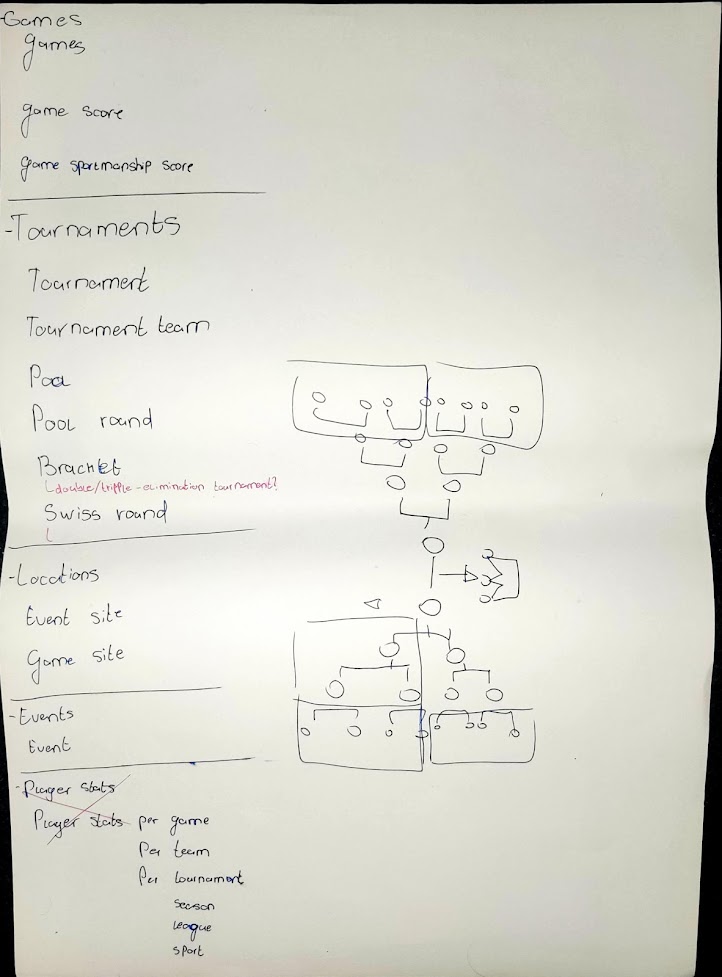 -Games
games
game score
Game sportmanship score
-Tournaments
Tournament
Tournament team
Pool
Pool round
Bracket
double/tripple-elimination tournament?
Swiss round
-Locations
Event site
Game site
-Events
Event
-Player stats
Player stats per game
Per team
Per tournament
season
league
sport